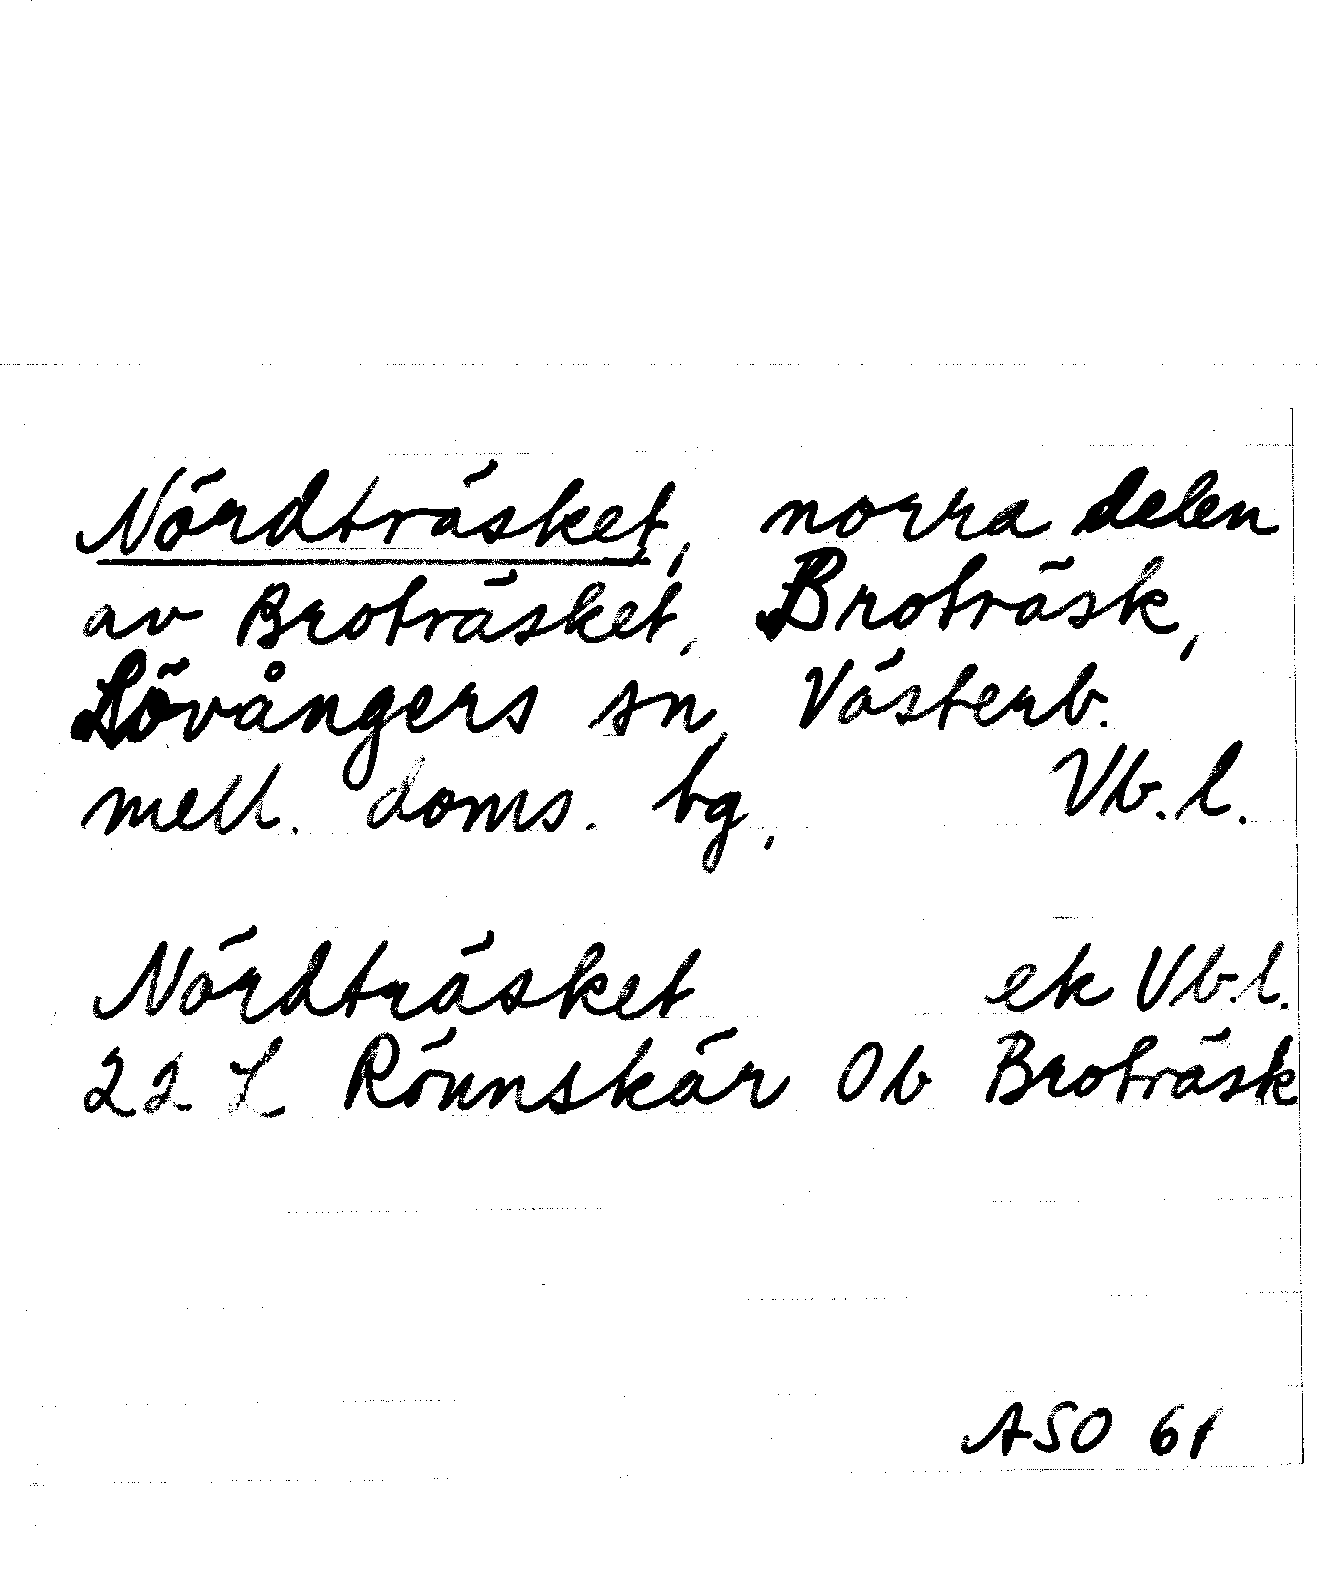 Nördträsket, norra delen
av Broträsket, Broträsk,
Lövångers sn, Västerb.
mell. doms. bg, Vb. l.
Nördträsket ek Vb. l.
22 L Rönnskär Ob Broträsk
ASO 61